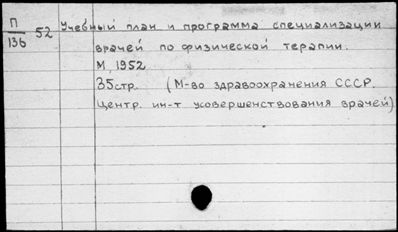 П/136 52 Учебный план и программа специализации
врачей по физической терапии.
М, 1952
35стр. (М-во здравоохранения СССР.
Центр. ин-т усовершенствования врачей)